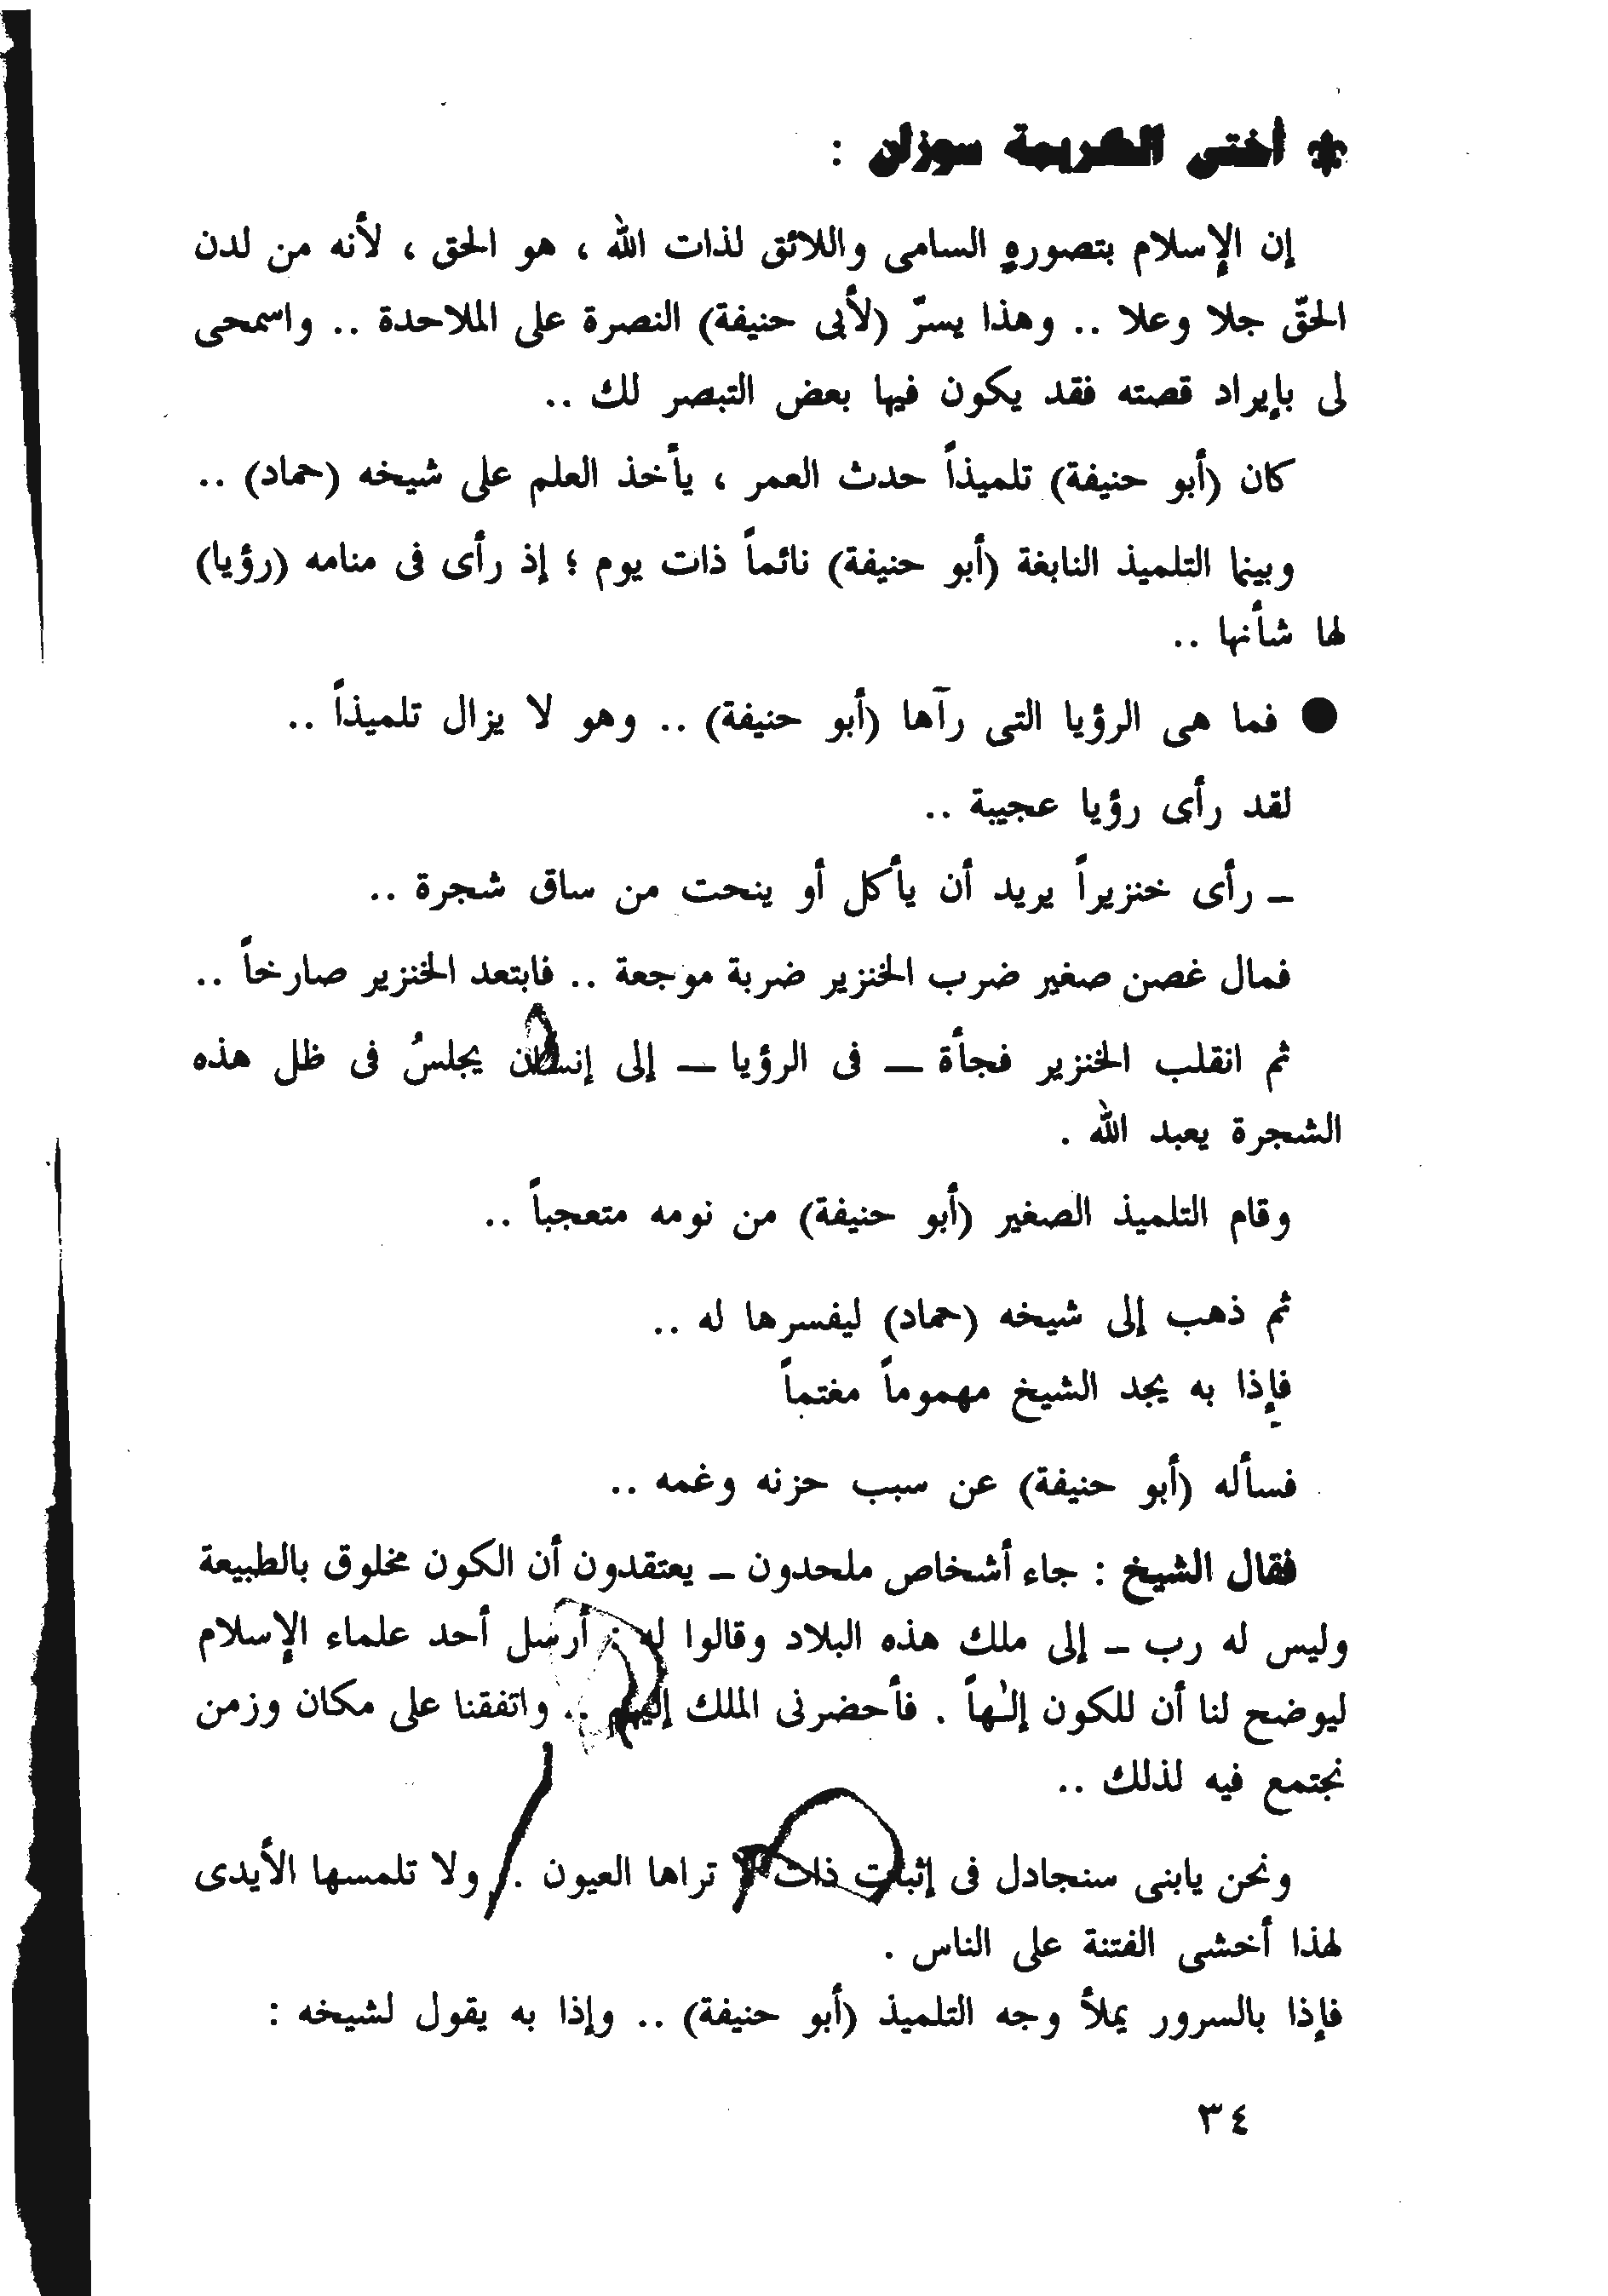 أختى الكريمة سوزان :
إن الإسلام بتصوره السامى واللائق لذات الله ، هو الحق ، لأنه من لدن
الحقّ جلا وعلا .. وهذا يسرّ (لأبى حنيفة) النصرة على الملاحدة .. واسمحى
لى بإيراد قصته فقد يكون فيها بعض التبصر لك ..
كان (أبو حنيفة) تلميذاً حدث العمر ، يأخذ العلم على شيخه (حماد) ..
وبينما التلميذ النابغة (أبو حنيفة) نائماً ذات يوم ؛ إذ رأى فى منامه (رؤيا)
لها شأنها ..
● فما هى الرؤيا التى رآها (أبو حنيفة) .. وهو لا يزال تلميذاً ..
لقد رأى رؤيا عجيبة ..
ــ رأى خنزيراً يريد أن يأكل أو ينحت من ساق شجرة ..
فمال غصن صغير ضرب الخنزير ضربة موجعة .. فابتعد الخنزير صارخاً ..
ثم انقلب الخنزير فجأة ــ فى الرؤيا ــ إلى إنسان يجلسُ فى ظل هذه
الشجرة يعبد الله .
وقام التلميذ الصغير (أبو حنيفة) من نومه متعجباً ..
ثم ذهب إلى شيخه (حماد) ليفسرها له ..
فإذا به يجد الشيخ مهموماً مغتماً
فسأله (أبو حنيفة) عن سبب حزنه وغمه ..
فقال الشيخ : جاء أشخاص ملحدون ــ يعتقدون أن الكون مخلوق بالطبيعة
وليس له رب ــ إلى ملك هذه البلاد وقالوا له : أرسل أحد علماء الإسلام
ليوضح لنا أن للكون إلـٰهاً . فأحضرنى الملك إليهم .. واتفقنا على مكان وزمن
نجتمع فيه لذلك ..
ونحن يابنى سنجادل فى إثبات ذات لا تراها العيون .. ولا تلمسها الأيدى
لهذا أخشى الفتنة على الناس .
فإذا بالسرور يملأ وجه التلميذ (أبو حنيفة) .. وإذا به يقول لشيخه :
٣٤